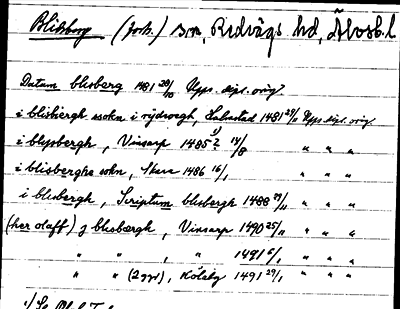 Blidsberg (förs.) sn, Redvägs hd, Älvsb. l
Datum blisberg 1481 28/10 Upps. dipl. orig.
i blisbergh ssokn i rydwegh, 1481 29/11 Upps. dipl. orig.
i blissbergh, Vinsarp 1485 1) 2 14/8 " " "
i blisberghe sokn, Skara 1486 16/1 " " "
i blisbergh, Scriptum blisbergh 1488 29/11 " " "
(her olaff) j blisbærgh, Vinsarp 1490 25/11 " " "
" " , " 1491 6/1 " " "
" " (2 ggr), Kölaby 1491 29/1 " " "
1)